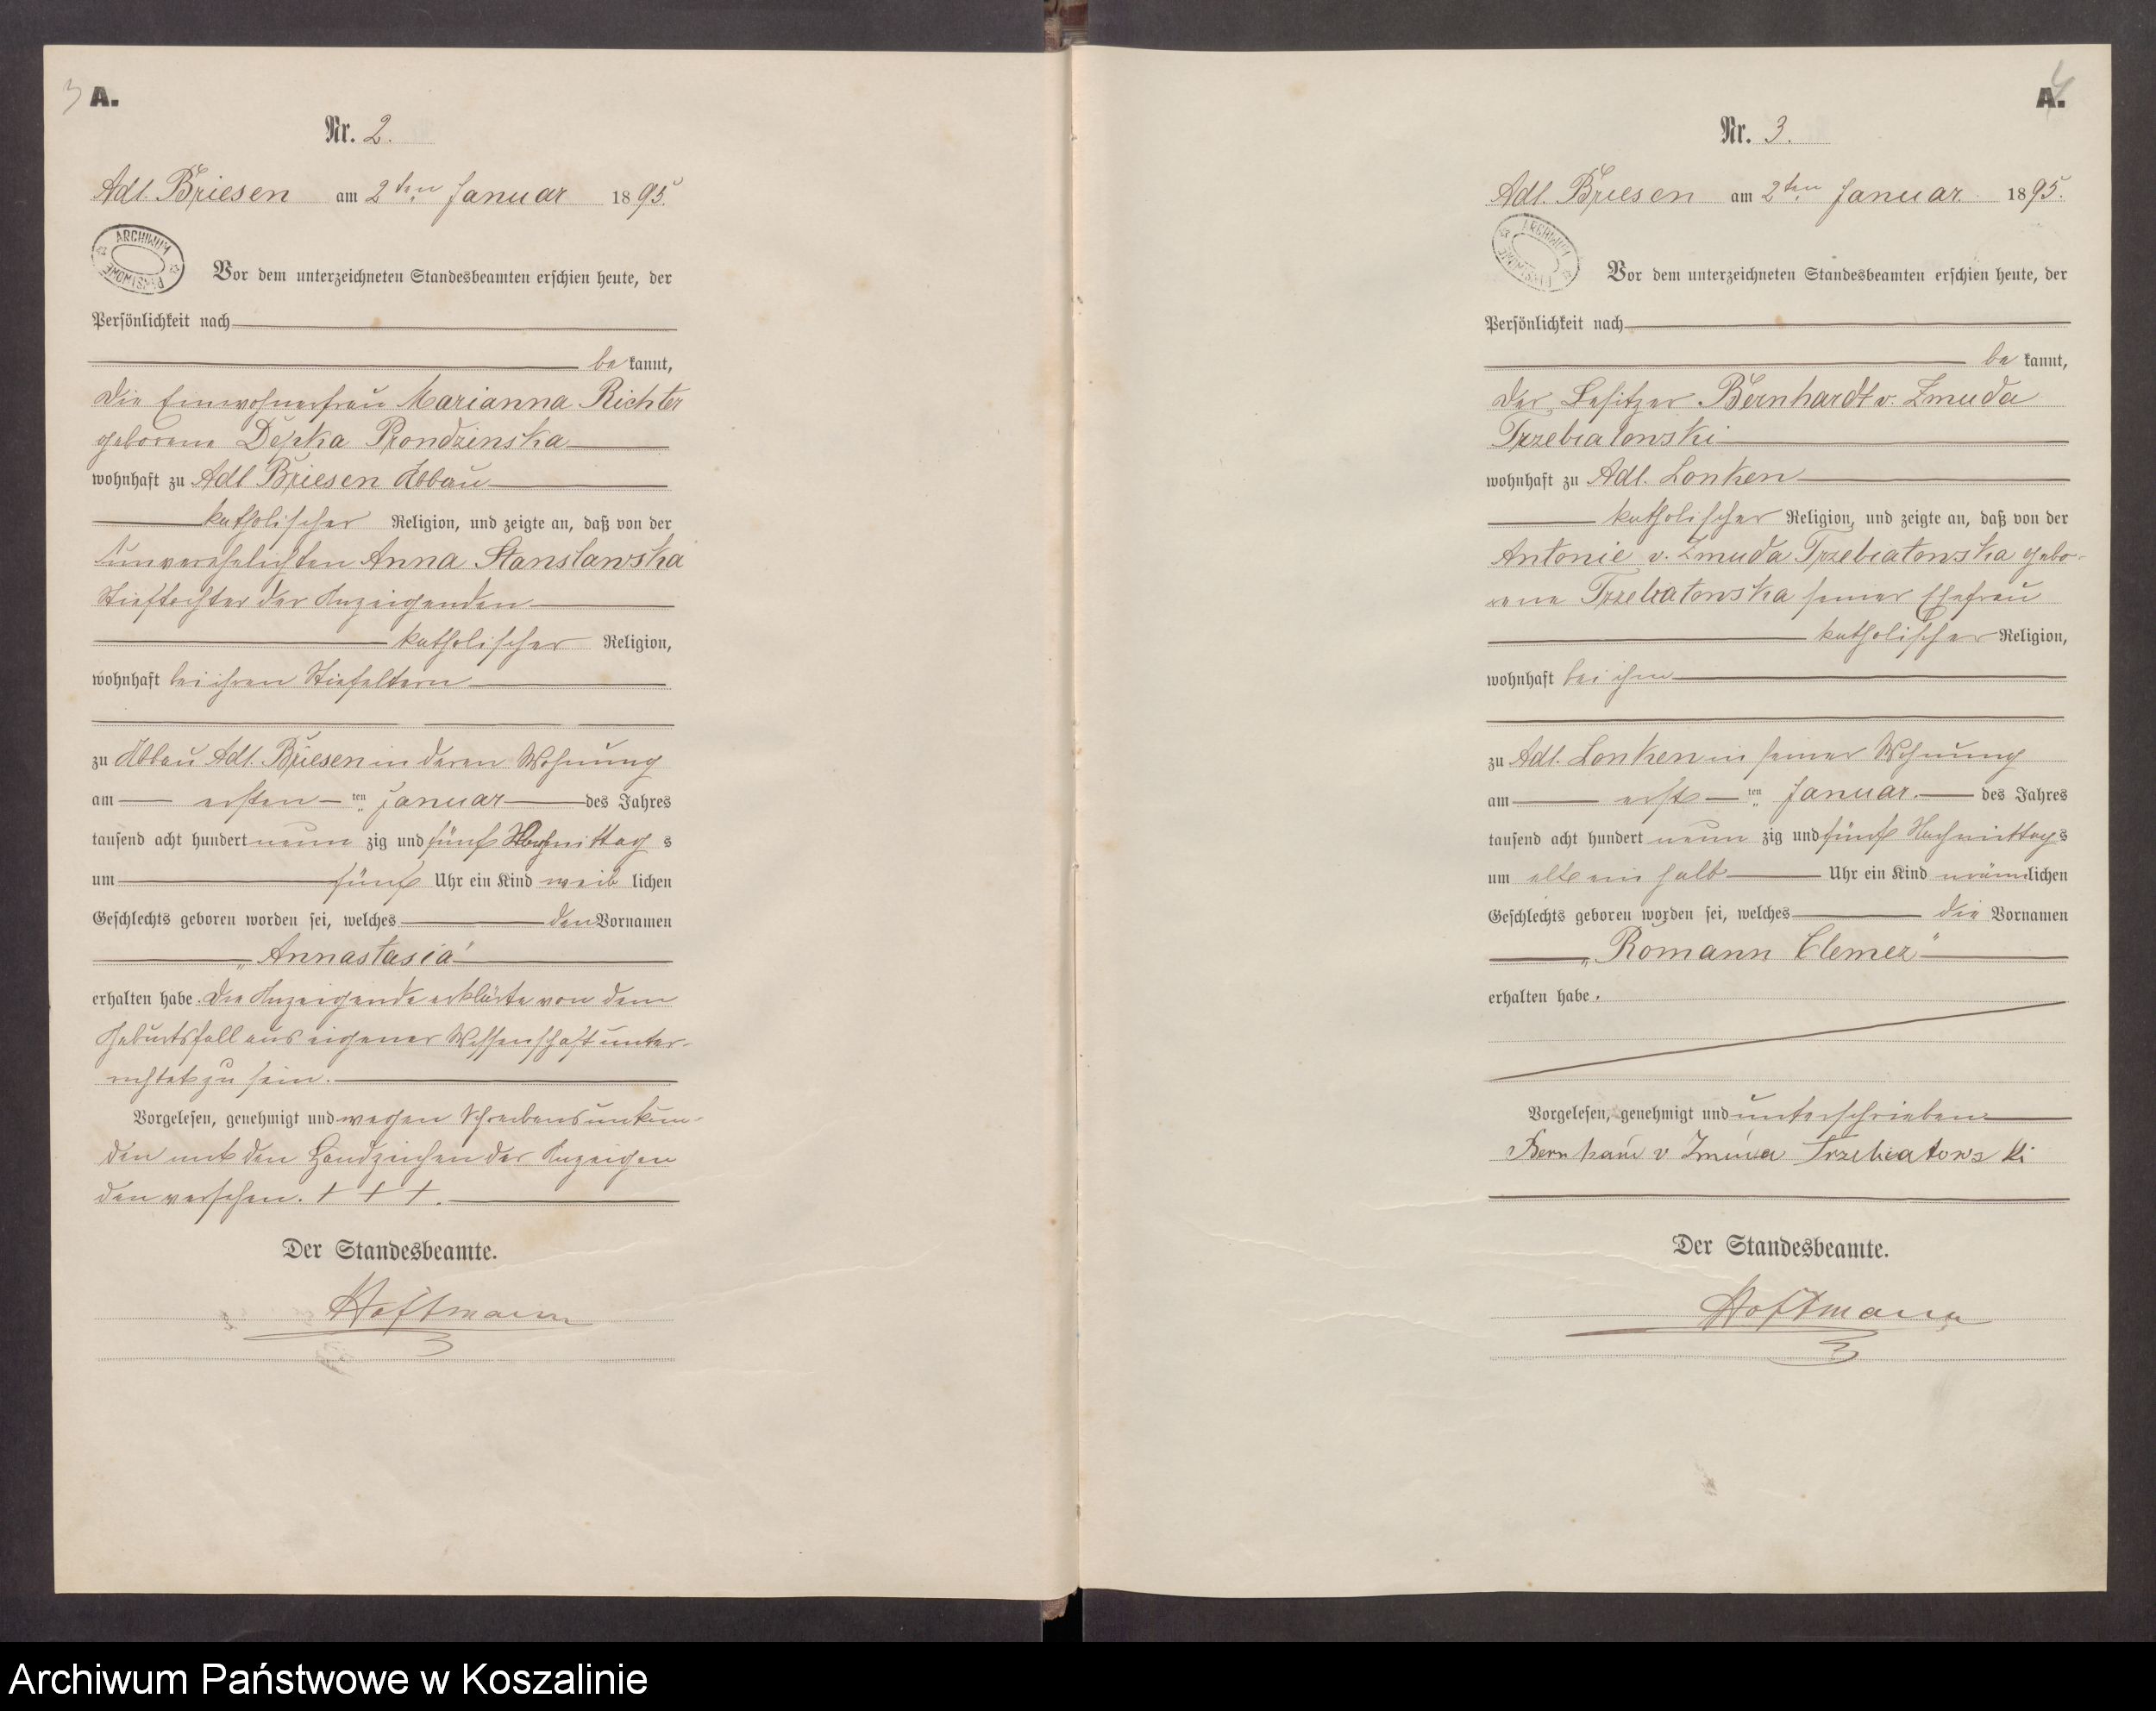 3 A.
Nr. 2.
Adl. Briesen am 2ten Januar 1895.
ARCHIWUM PAŃSTWOWE
Vor dem unterzeichneten Standesbeamten erschien heute, der
Persönlichkeit nach
be kannt,
die Einwohnerfrau Marianna Richter
geborene Depka Prondzinska
wohnhaft zu Adl Briesen Abbau
katholischer Religion, und zeigte an, daß von der
unverehelichten Anna Stanslawska
Stieftochter der Anzeigenden
katholischer Religion,
wohnhaft bei ihren Stiefeltern
zu Abbau Adl. Briesen in deren Wohnung
am ersten ten Januar des Jahres
tausend acht hundert neun zig und fünf Nachmittag s
um fünf Uhr ein Kind weib lichen
Geschlechts geboren worden sei, welches den Vornamen
„Annastasia"
erhalten habe. Die Anzeigende erklärte von dem
Geburtsfall aus eigener Wissenschaft unter-
richtet zu sein.
Vorgelesen, genehmigt und wegen Schreibensunkun-
den mit den Handzeichen der Anzeigen
den versehen. + + +.
Der Standesbeamte.
Hoffmann
A. 4
Nr. 3.
Adl. Briesen am 2ten Januar 1895.
ARCHIWUM PAŃSTWOWE
Vor dem unterzeichneten Standesbeamten erschien heute, der
Persönlichkeit nach
be kannt,
der Besitzer Bernhardt v. Zmuda
Trzebiatowski
wohnhaft zu Adl. Lonken
katholischer Religion, und zeigte an, daß von der
Antonie v. Zmuda Trzebiatowska gebo-
rene Trzebiatowska seiner Ehefrau
katholischer Religion,
wohnhaft bei ihm
zu Adl. Lonken in seiner Wohnung
am erst ten Januar. des Jahres
tausend acht hundert neun zig und fünf Nachmittag s
um elf ein halb Uhr ein Kind männ lichen
Geschlechts geboren worden sei, welches die Vornamen
„Romann Clemez"
erhalten habe.
Vorgelesen, genehmigt und unterschrieben
Bernhard v Zmuda Trzebiatowski
Der Standesbeamte.
Hoffmann
Archiwum Państwowe w Koszalinie